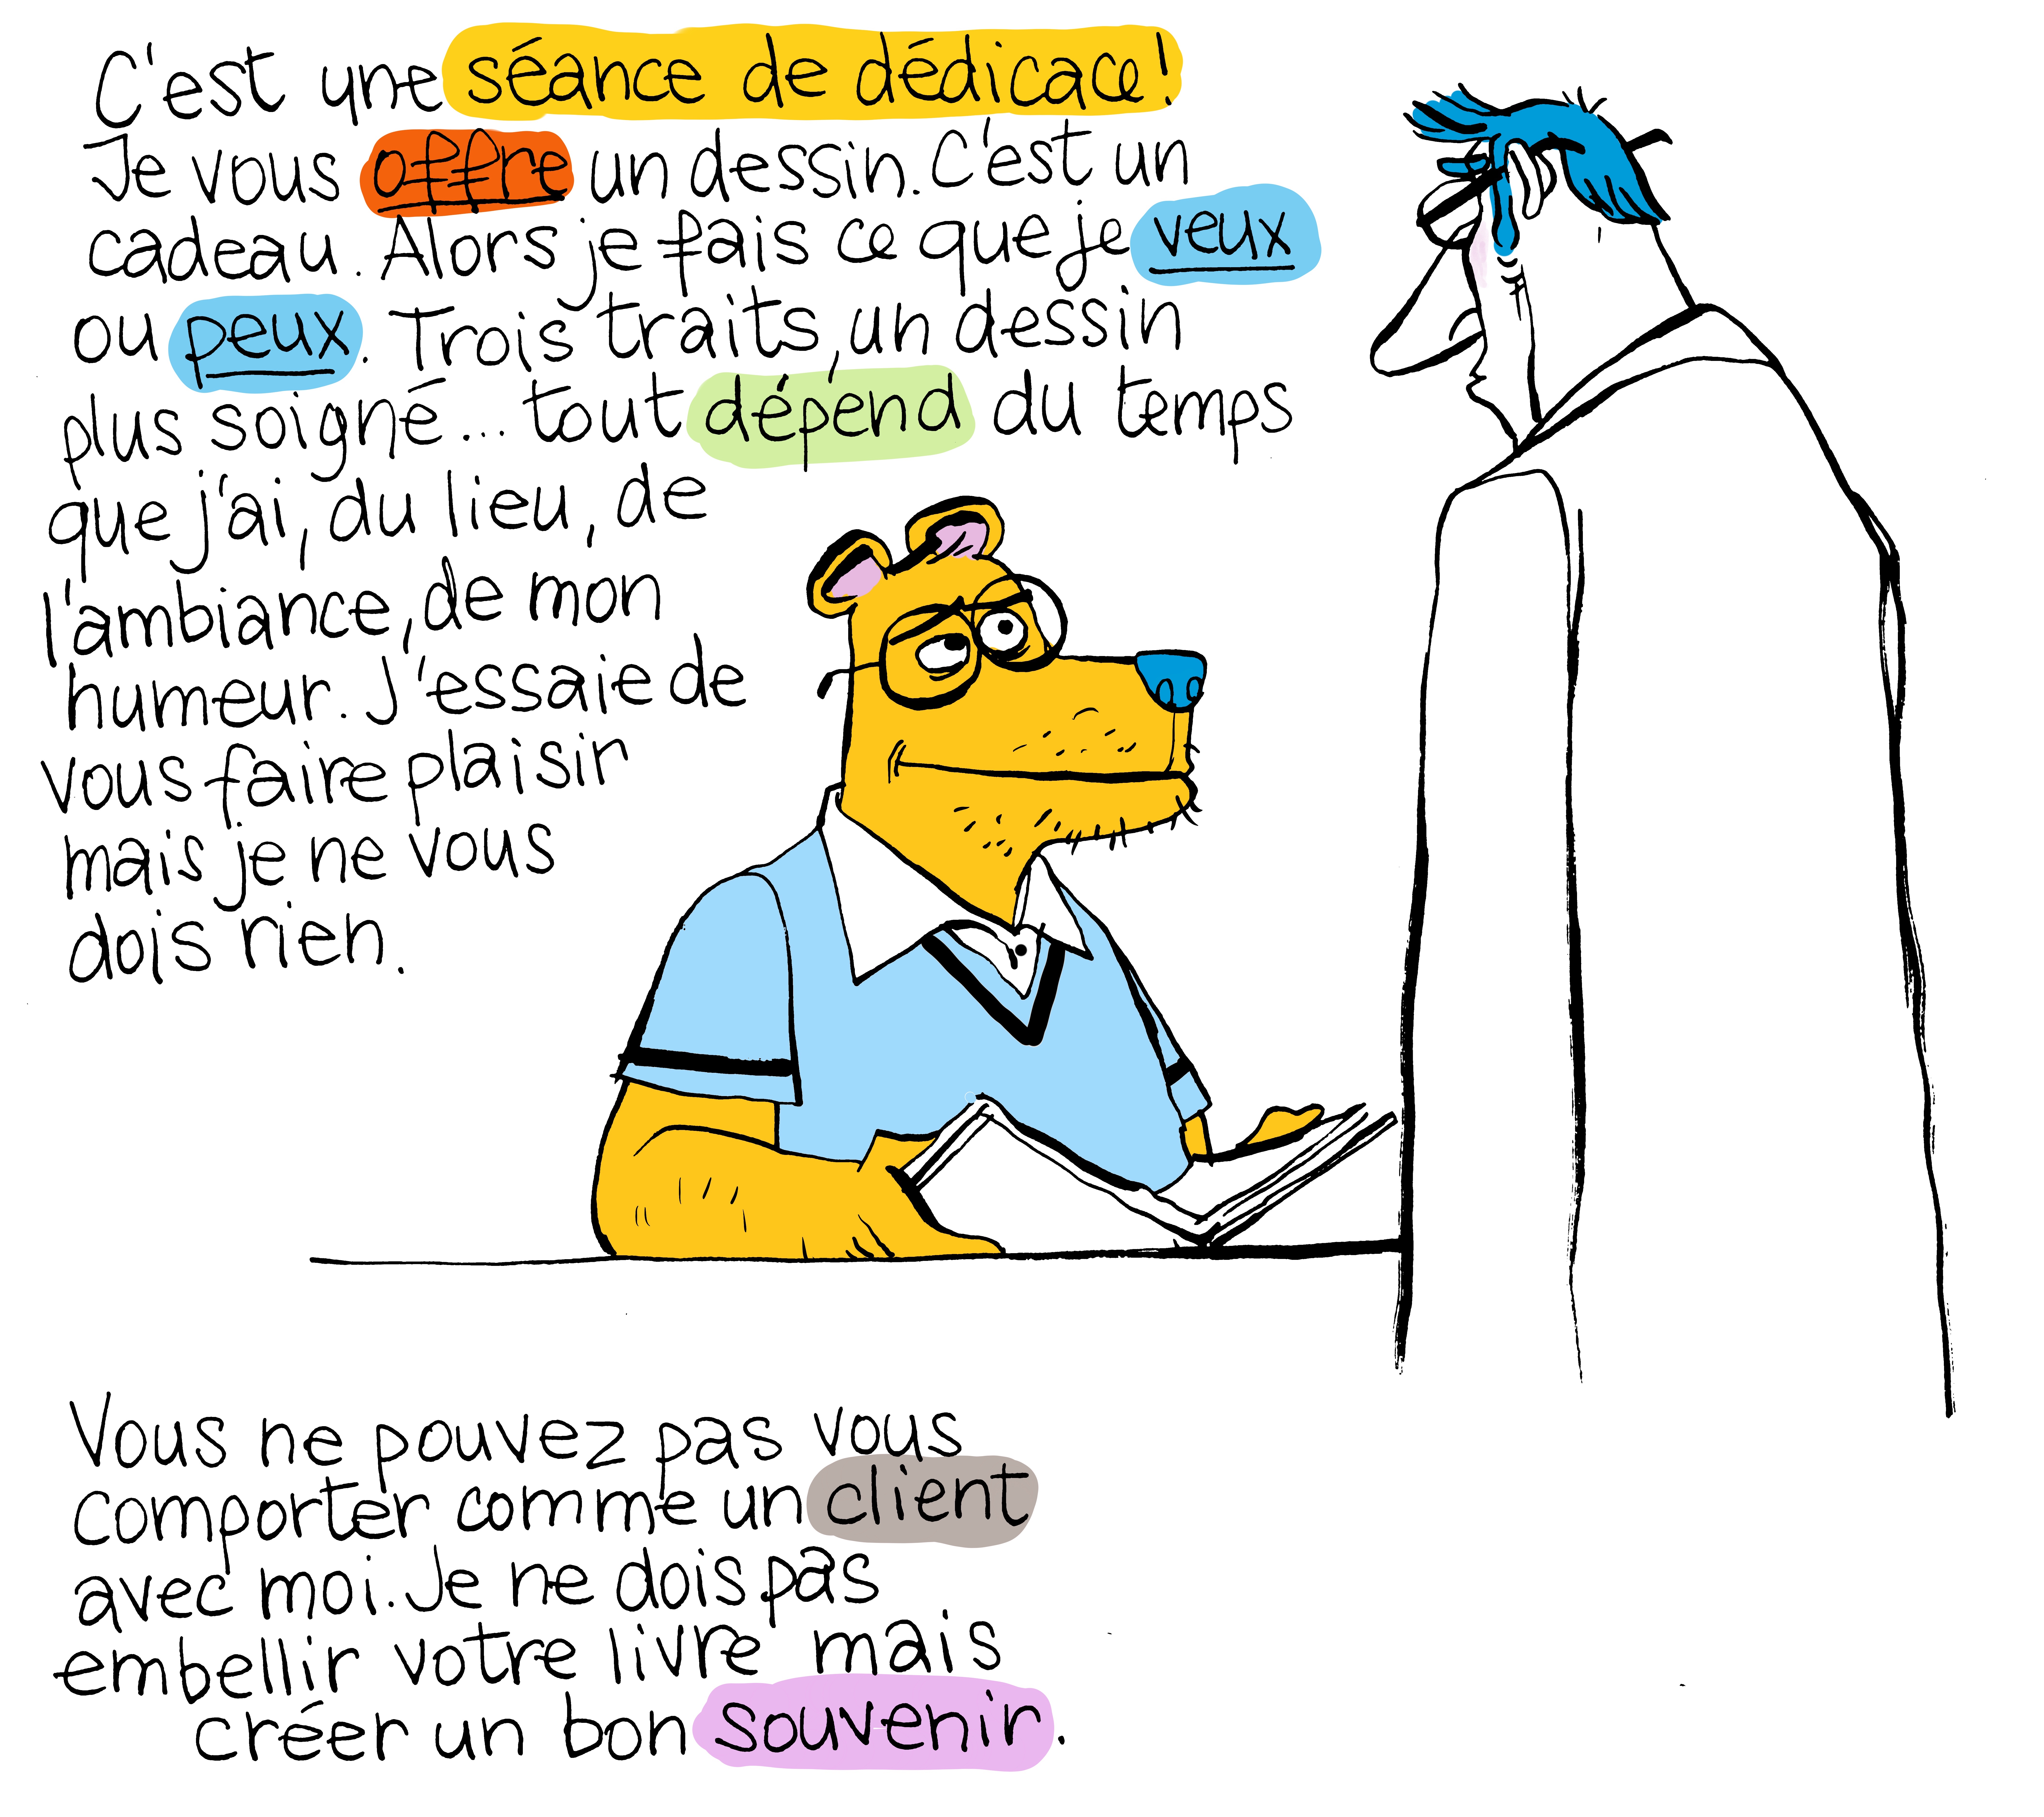 C'est une séance de dédicace!
Je vous offre un dessin. C'est un
cadeau. Alors je fais ce que je veux
ou peux. Trois traits, un dessin
plus soigné... tout dépend du temps
que j'ai, du lieu, de
l'ambiance, de mon
humeur. J'essaie de
vous faire plaisir
mais je ne vous
dois rien.
Vous ne pouvez pas vous
comporter comme un client
avec moi. Je ne dois pas
embellir votre livre mais
créer un bon souvenir.